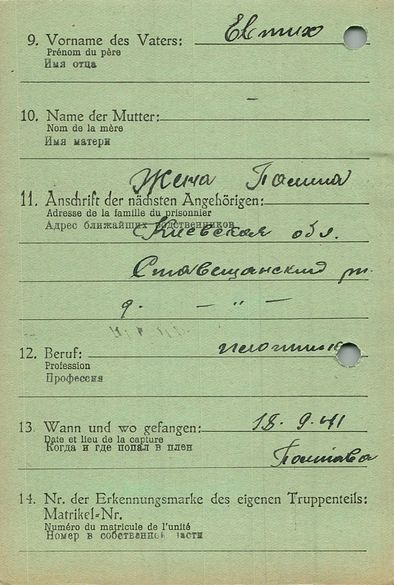 9. Vorname des Vaters: Евтих
Prénom du père
Имя отца
10. Name der Mutter: –
Nom de la mère
Имя матери
Жена
11. Anschrift der nächsten Angehörigen:
Adresse de la famille du prisonnier
Адрес ближайших родственников Киевская обл.
Ставещанский р.
д. – „ –
12. Beruf:
Profession
Профессия
13. Wann und wo gefangen: 18. 9. 41
Date et lieu de la capture
Когда и где попал в плен
14. Nr. der Erkennungsmarke des eigenen Truppenteils:
Matrikel-Nr.
Numéro du matricule de l'unité
Номер в собственной части